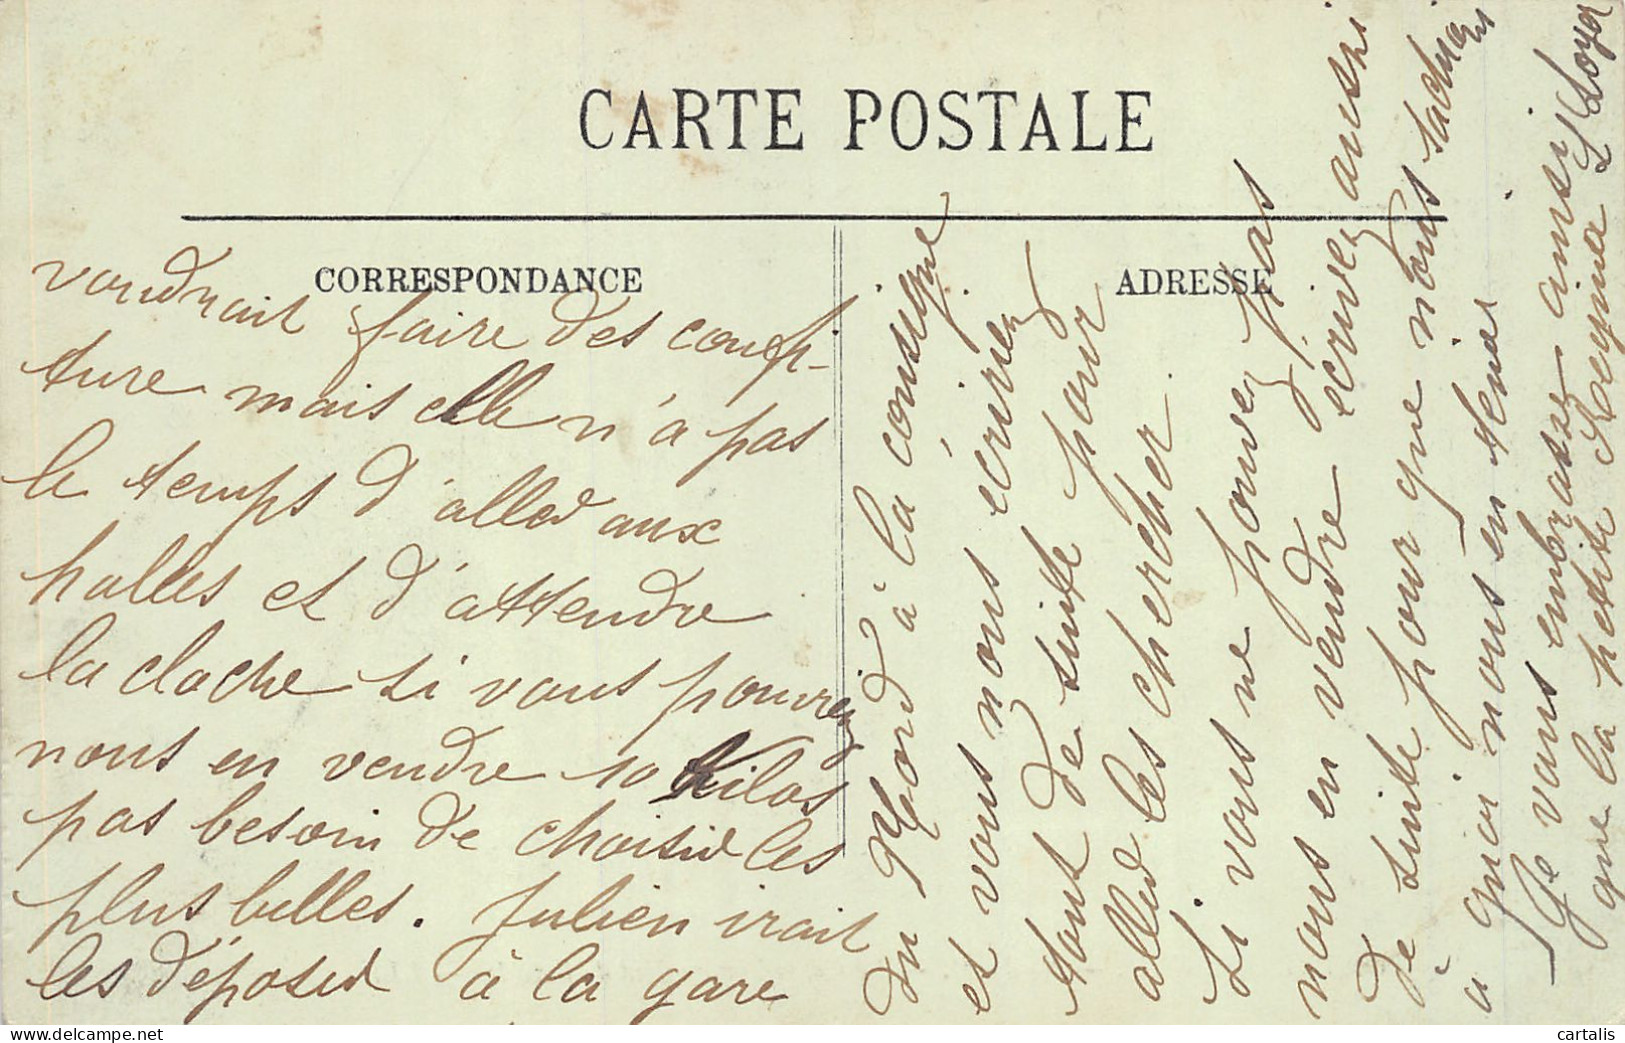 CARTE POSTALE
CORRESPONDANCE
ADRESSE
voudrait faire des confi-
ture mais elle n'a pas
le temps d'aller aux
halles et d'attendre
la cloche si vous pouvrez
nous en vendre 10 kilos
pas besoin de choisir les
plus belles. Julien irait
les déposer à la gare
du Nord à la consigne
et vous nous écririez
tout de suite pour
aller les chercher.
Si vous ne pouvez pas
nous en vendre écrivez aussi
de suite pour que nous sachions
à quoi nous en tenir
Je vous embrasse ainsi
que la petite Regina L Loyer
cartalis